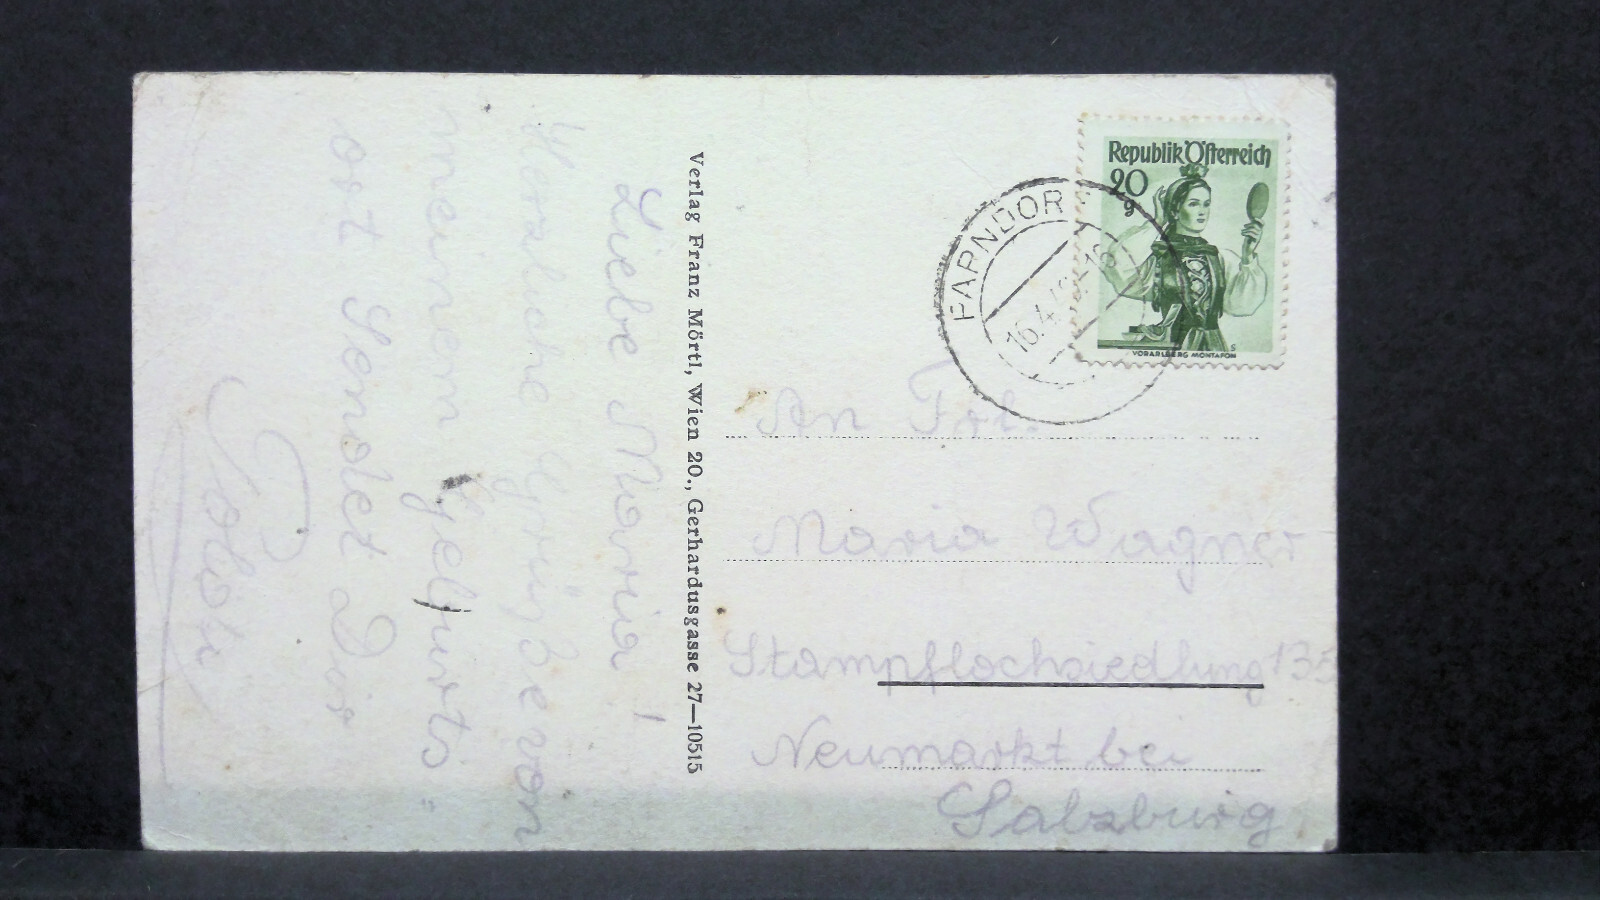 Liebe Maria!
Herzliche Grüße von
meinem Geburts=
ort sendet Dir
Verlag Franz Mörtl, Wien 20., Gerhardusgasse 27—10515
Republik Österreich
20
g
VORARLBERG MONTAFON
PARNDORF
16.4.
An Frl.
Maria Wagner
Stampflochsiedlung 135
Neumarkt bei
Salzburg